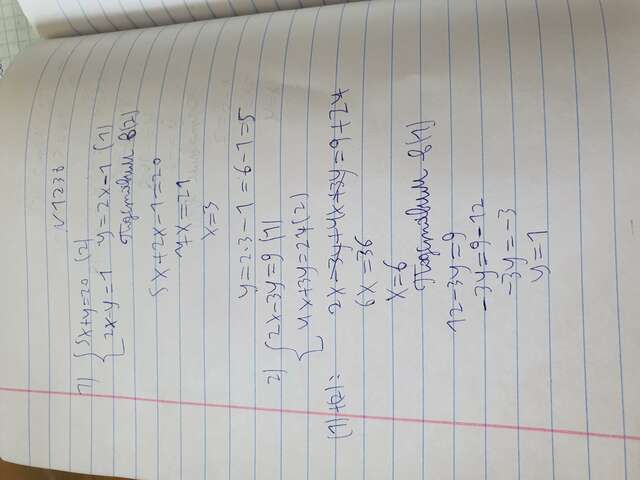 №1238
1) { 5x+y=20 (2)
{ 2x-y=1 y=2x-1 (1)
Подставим в(2)
5x+2x-1=20
7x=21
x=3
y=2·3-1=6-1=5
2) { 2x-3y=9 (1)
{ 4x+3y=27(2)
(1)+(2): 2x-3y+4x+3y=9+27
6x=36
x=6
Подставим в(1)
12-3y=9
-3y=9-12
-3y=-3
y=1